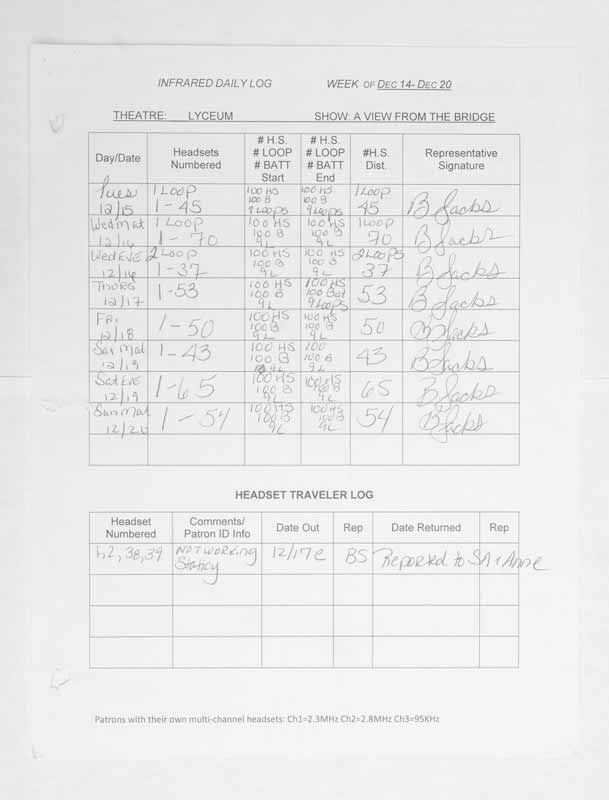 INFRARED DAILY LOG WEEK OF DEC 14- DEC 20
THEATRE: LYCEUM SHOW: A VIEW FROM THE BRIDGE
Day/Date Headsets Numbered # H.S. # LOOP # BATT Start # H.S. # LOOP # BATT End #H.S. Dist. Representative Signature
Tues 12/15 1 LOOP 1-45 100 HS 100 B 9 LOOPS 100 HS 100 B 9 LOOPS 1 LOOP 45 B Jacks
Wed Mat 12/16 1 LOOP 1-70 100 HS 100 B 9L 100 HS 100 B 9L 1 LOOP 70 B Jacks
Wed EVE 12/16 2 LOOP 1-37 100 HS 100 B 9L 100 HS 100 B 9L 2 LOOPS 37 B Jacks
THURS 12/17 1-53 100 HS 100 B 9L 100 HS 100 Bat 9 LOOPS 53 B Jacks
FRI 12/18 1-50 100 HS 100 B 9L 100 HS 100 B 9L 50 B Jacks
Sat Mat 12/19 1-43 100 HS 100 B 9L 100 100 B 9L 43 B Jacks
Sat EVE 12/19 1-65 100 HS 100 B 9L 100 HS 100 B 9L 65 B Jacks
Sun Mat 12/20 1-54 100 HS 100 B 9L 100 HS 100 B 9L 54 B Jacks
HEADSET TRAVELER LOG
Headset Numbered Comments/ Patron ID Info Date Out Rep Date Returned Rep
38, 39 NOT WORKING Staticy 12/17 BS Reported to SA + Anne
Patrons with their own multi-channel headsets: Ch1=2.3MHz Ch2=2.8MHz Ch3=95KHz